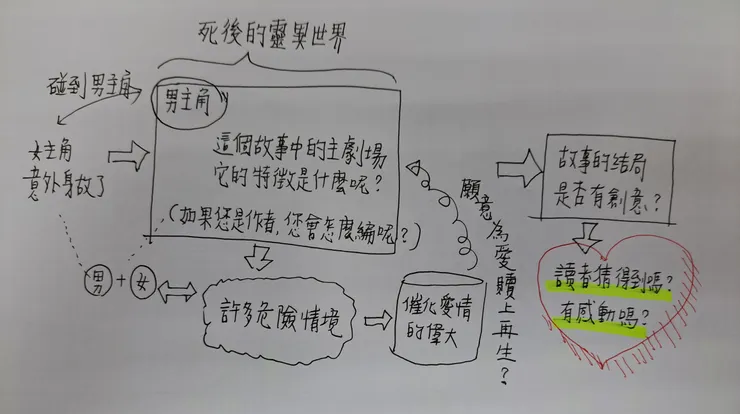 死後的靈異世界
碰到男主角
男主角
女主角
意外身故了
這個故事中的主劇場
它的特徵是什麼呢?
(如果您是作者,您會怎麼編呢?)
男+女
許多危險情境
催化愛情
的偉大
願意為愛賭上再生?
故事的结局
是否有創意?
讀者猜得到嗎?
有感動嗎?